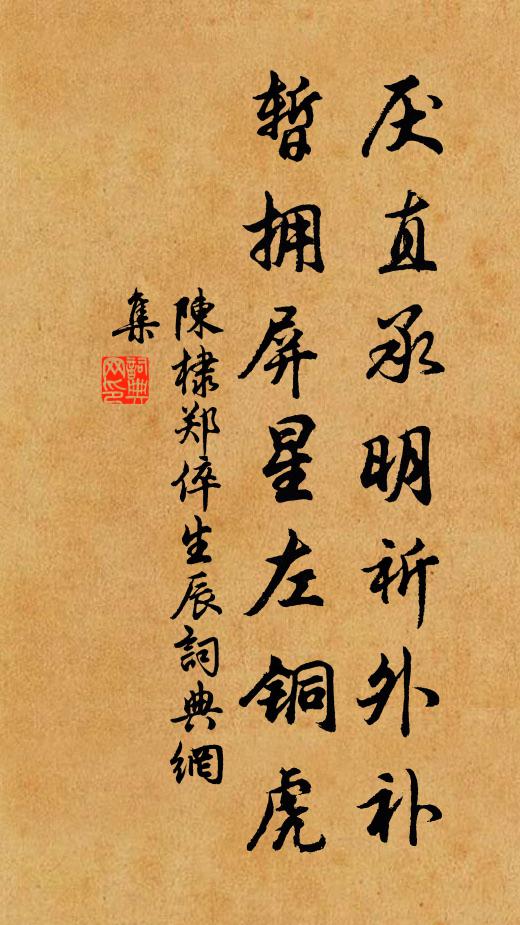 厌直承明祈外补
暂拥屏星左铜虎
陳棣郑倅生辰詞典網
集
詞典网印